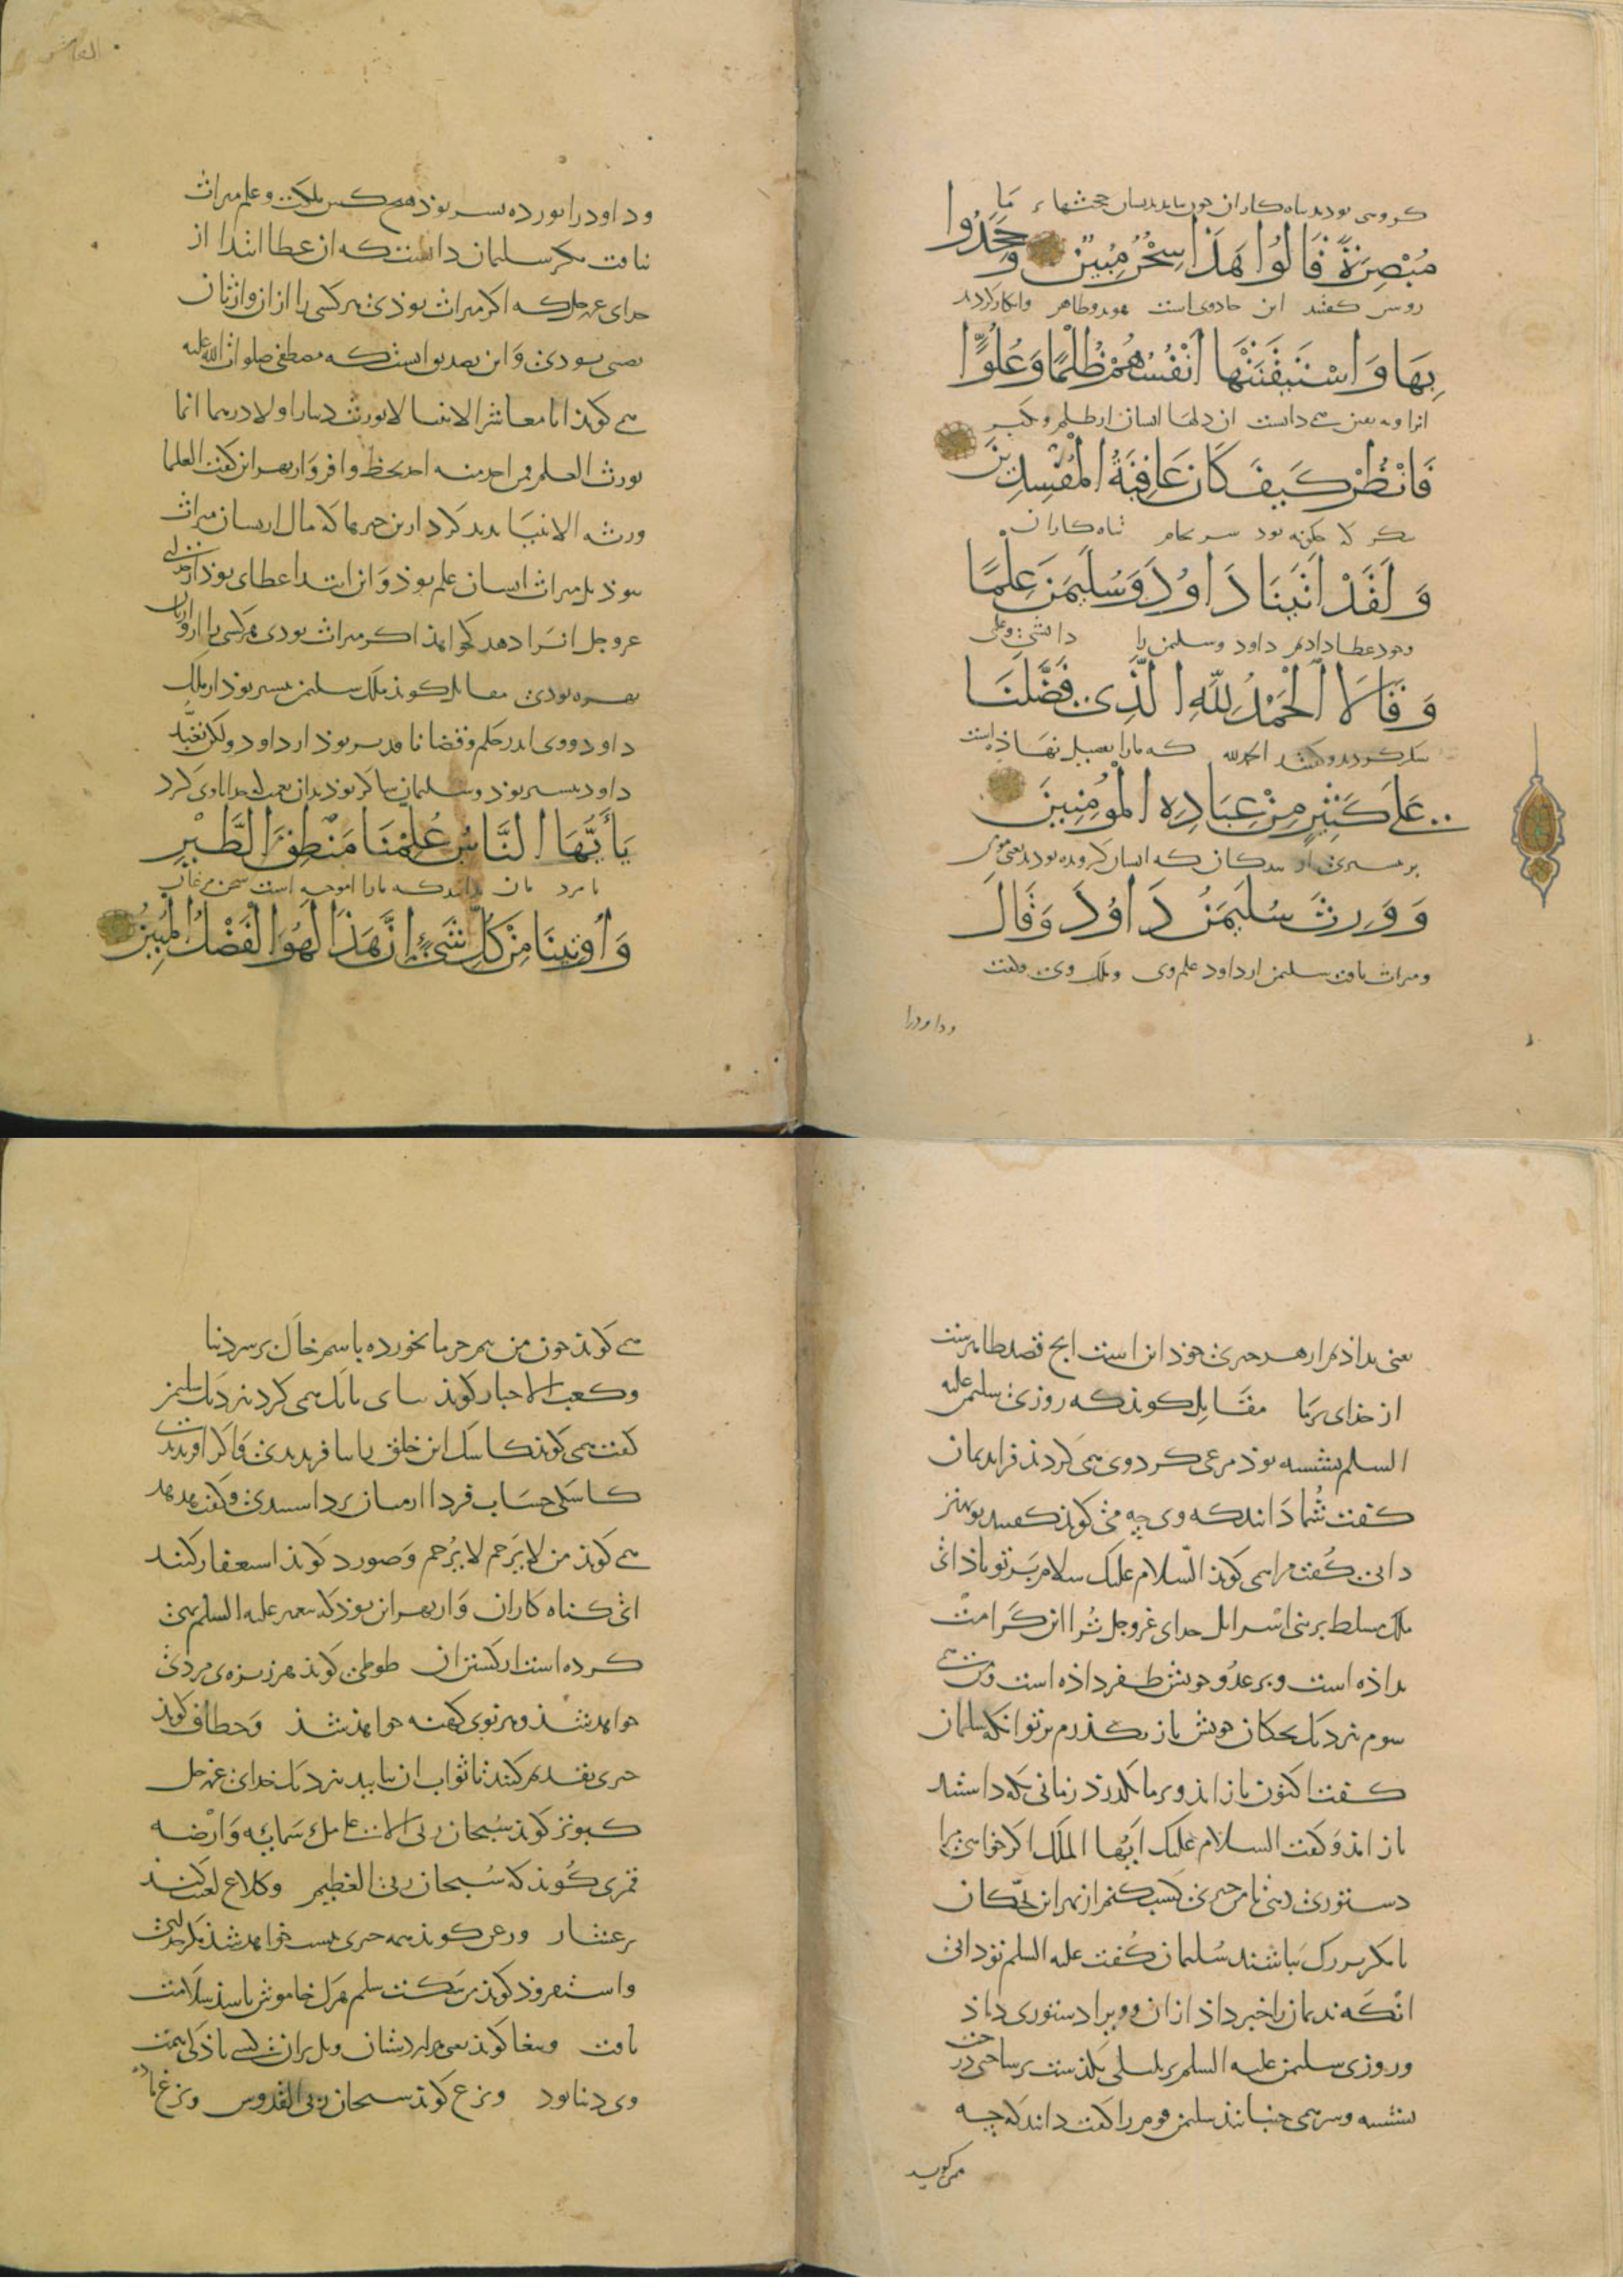 کروهی بودند تباه کاران چون بیامد بدیشان حجتهاء ما
مُبْصِرَةً قَالُوا هَذَا سِحْرٌ مُبِينٌ وَجَحَدُوا
روشن کفتند این جادوی است هویدا و ظاهر وانکار کردند
بِهَا وَاسْتَيْقَنَتْهَا أَنْفُسُهُمْ ظُلْمًا وَعُلُوًّا
انرا و به یقین می دانست ان دلهاء ایشان از ظلم و تکبر
فَانْظُرْ كَيْفَ كَانَ عَاقِبَةُ الْمُفْسِدِينَ
بنکر کی چکونه بود سرنجام تباه کاران
وَلَقَدْ اتَيْنَا دَاوُدَ وَسُلَيْمَنَ عِلْمًا
داذیم داود وسلیمن را دانشی
وَقَالَا الْحَمْدُ لِلَّهِ الَّذِي فَضَّلَنَا
شکر کردند و کفتند الحمدلله که مارا تفضیل نهاذه است
عَلَى كَثِيرٍ مِنْ عِبَادِهِ الْمُؤْمِنِينَ
بر بسیری از بندکان که ایشان کرویده بودند
وَوَرِثَ سُلَيْمَنُ دَاوُدَ وَقَالَ
ومیراث یافت سلیمن از داود علم وی وملک وی وکفت
وداودرا
العاشر
وداودرا نوزده پسر بوذ هیچ کس ملکت و علم میراث
نیافت مکر سلیمان دانست که ان عطا ابتدا از
خدای عزوجل که اکر میراث بوذی هر کسی را از ان وارثان
نصیبی بودی و این تصدیق انست که مصطفی صلوات الله علیه
می کوید انا معاشر الانبیا لا نورث دینارا ولا درهما انما
نورث العلم فمن اخذ منه اخذ بحظ وافر و از بهر این کفت العلما
ورثه الانبیا بدید کرد ازین خبر ما که مال از یشان میراث
نبوذ بل میراث ایشان علم بوذ و ان ابتدا عطای بوذ
عزوجل انرا دهد کی خواهذ اکر میراث بودی هر کسی را از وارثان
بهره بودی مقاتل کوید ملک سلیمن بیشتر بوذ از ملک
داود و وی اندر حکم و قضا نافذتر بوذ از داود ولکن تعبد
داود بیشتر بوذ و سلیمان شاکر بوذ بدان نعمت
يَأَيُّهَا النَّاسُ عُلِّمْنَا مَنْطِقَ الطَّيْرِ
یا مردمان بدانید که مارا اموخته است سخن مرغان
وَأُوتِينَا مِنْ كُلِّ شَيْءٍ إِنَّ هَذَا لَهُوَ الْفَضْلُ الْمُبِينُ
یعنی بداذ مرا از هر چیزی خود این است فضل ظاهرست
از خدای بر ما مقاتل کوید که روزی سلیمن علیه
السلم نشسته بوذ مرغی کرد وی همی کردید فرا ندیمان
کفت شُما دانید که وی چه می کوید کفتند تو بهتر
دانی کفت مرا همی کوید السلام علیک سلام بر تو باذ ای
ملک مسلط بر بنی اسرایل خدای عزوجل ترا این کرامت
بداذه است و بر عدو خویش ظفر داذه است من می
شوم نزدیک بچکان خویش باز بکذرم بر تو انکه سلیمان
کفت اکنون باز ایذ و بر ما بکذرد زمانی که داشتند
باز امذ و کفت السلام علیک ایها الملک اکر خواهی مرا
دستوری دهی تا من چیزی کسب کنم از بهر این بچکان
تا مکر بزرک بباشند سُلیمان کفت علیه السلم تو دانی
انکه ندیمان را خبر داذ ازان و ویرا دستوری داذ
وروزی سلیمن علیه السلم بر بلبلی بکذشت بر شاخی درخت
نشسته وسر همی جنبانید سلیمن قوم را کفت دانید که چه
می کوید
می کوید چون من نیم خرما بخورده باشم خاک بر سر دنیا
وکعب الاحبار کوید بانک همی کرد نزدیک سلیمن
کفت همی کوید کاشکی این خلق را نیافریدندی و اکر افریدند
کاشکی حساب فردا از میان برداشتندی و کفت هدهد
می کوید من لا یَرحم لا یُرحم و صورد کوید استغفار کنید
ای کناه کاران و از بهر این بوذ که پیغمبر علیه السلم نهی
کرده است از کشتن ان طوطی کوید هر زنده ی مردنی
خواهد شذ و هر نوی کهنه خواهد شذ و خطاف کوید
خیری تقدیم کنید تا ثواب ان بیابید نزدیک خدای عزوجل
کبوتر کوید سُبحان ربی الاعلی ملء سمایه و ارضه
قمری کُوید که سُبحان ربی العظیم وکلاغ لعنت کند
بر عشار وزغن کوید همه چیزی نیست خواهد شذ مکر خدای
واسفهروذ کوید من سکت سلم هرک خاموش باشد سلامت
یافت وببغا کوید ویل بران کسی باذ کی همت
وی دنیا بود ونزع کوید سبحان ربی القدوس ونزغ